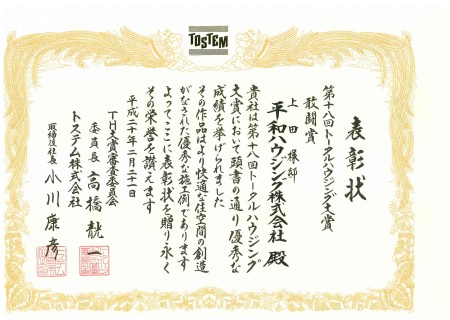 TOSTEM
表彰状
第十八回トータルハウジング大賞
敢闘賞
上田様邸
平和ハウジング株式会社 殿
貴社は第十八回トータルハウジング
大賞において頭書の通り優秀な
成績を挙げられました
その作品はより快適な住空間の創造
がなされた優秀な施工例であります
よってここに表彰状を贈り永く
その栄誉を讃えます
平成二十年二月二十一日
TH大賞審査委員会
委員長 高橋龍一
トステム株式会社
取締役社長 小川康彦